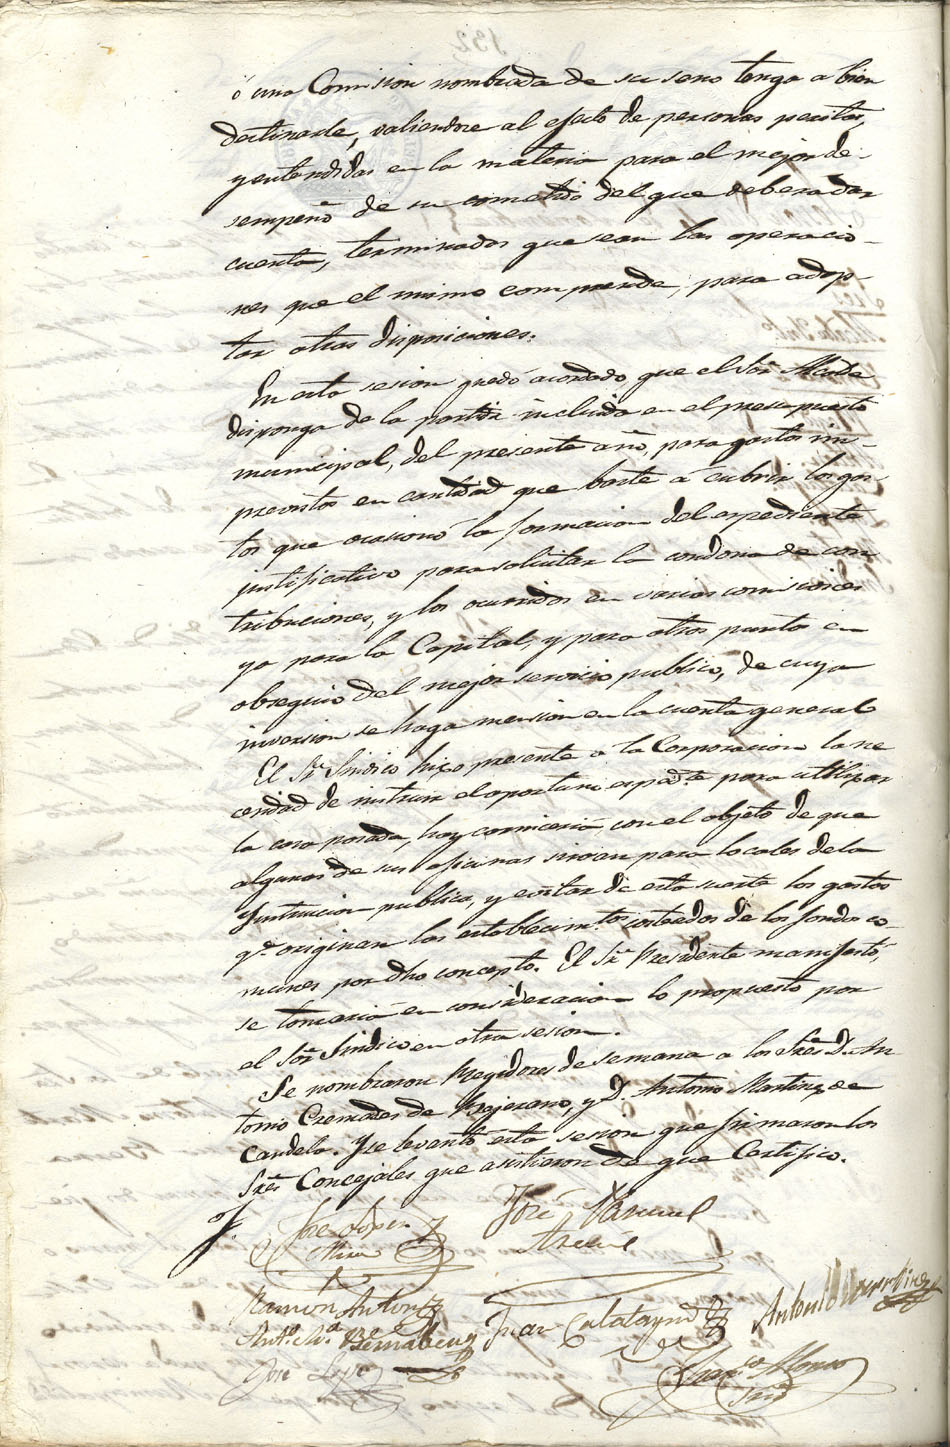 ó una Comision nombrada de su seno tenga a bien
destinarle, valiendose al efecto de personas peritas,
y entendidas en la materia para el mejor de-
sempeño de su cometido del que debera dar
cuenta, terminadas que sean las operacio-
nes que el mismo comprende, para adop-
tar otras disposiciones.
En esta sesion quedó acordado que el Sor. Alcalde
disponga de la partida incluida en el presupuesto
municipal, del presente año, para gastos im-
previstos en cantidad que baste á cubrir los gas-
tos que ocasionó la formacion del expediente
justificativo para solicitar la condona de con
tribuciones, y los ocurridos en varias comisiones
ya para la Capital, y para otros puntos en
obsequio del mejor servicio publico, de cuya
inversion se haga mension en la cuenta general
El Sr. Sindico hizo presente a la Corporacion la ne
cesidad de instruir el oportuno expedte. para utilizar
la casa posada, hoy carniceria con el objeto de que
algunas de sus oficinas sirvan para locales de la
Instruccion publica, y evitar de esta suerte los gastos
qe. originan los establecimtos. costeados de los fondos co-
munes por dho concepto. El Sr. Presidente manifestó,
se tomaria en consideracion lo propuesto por
el Sor. Sindico en otra sesion.
Se nombraron Regidores de semana a los Sres. Dn. An
tonio Cremades de Krajerano, y D. Antonio Martinez de
Candela. Y se levantó esta sesion que firmaron los
Sres. Concejales que asistieron de que Certifico.
José Lopez
Mira
José Manuel
Ramon Anton
Anto. Ma. Bernabeu
Juan Calatayud
Antonio Martinez
José
Franco. Alonso
Srio